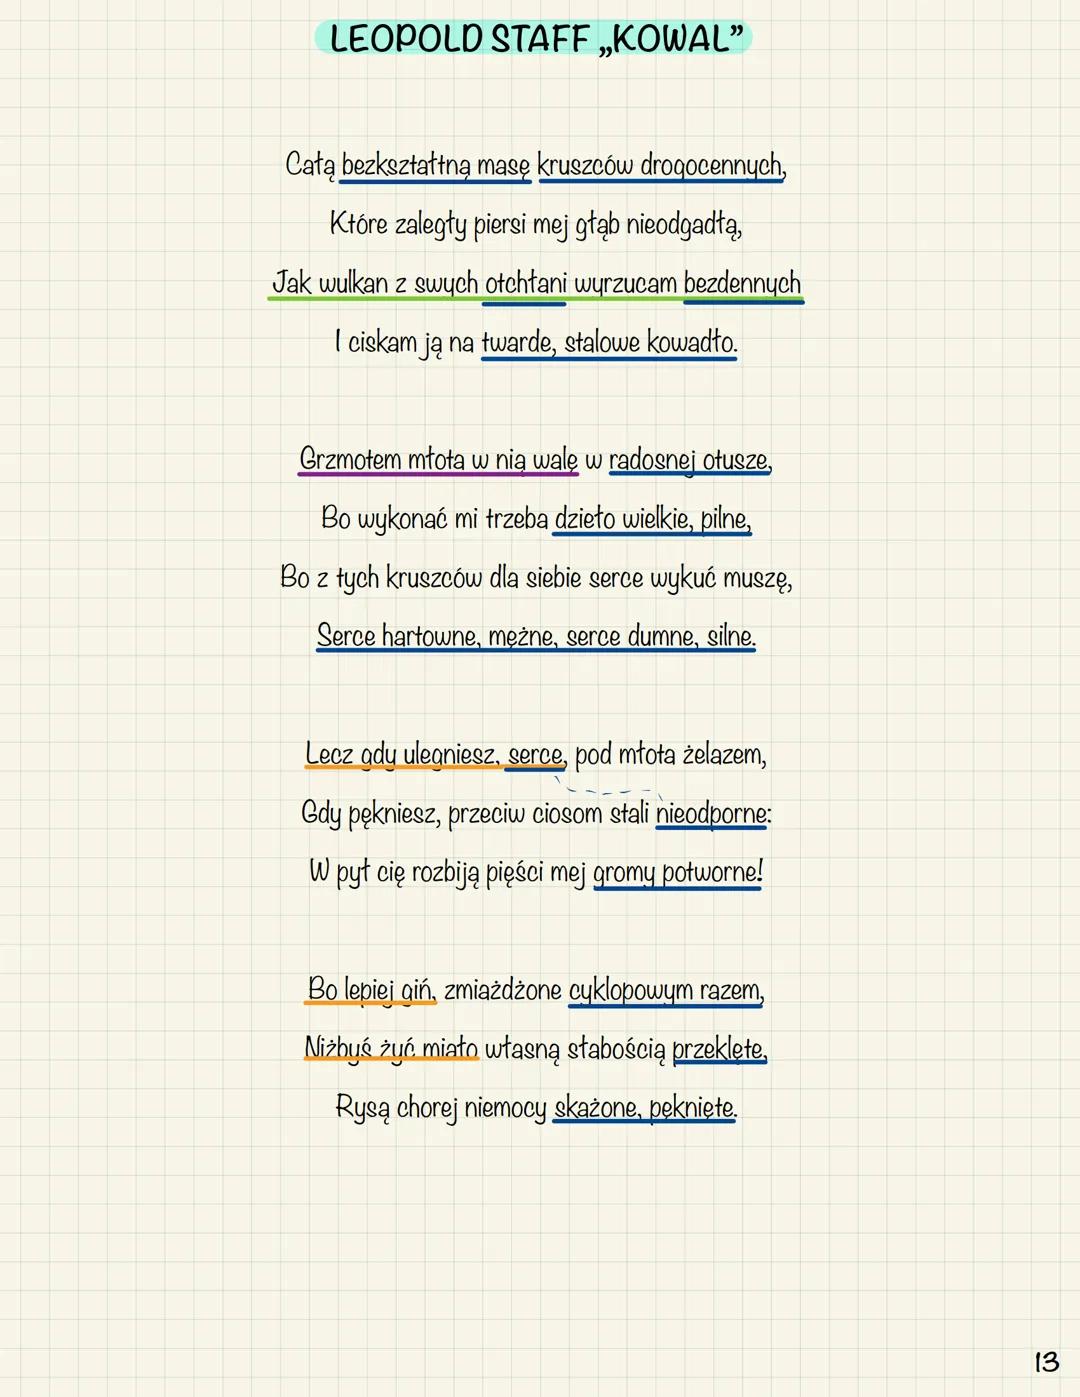 LEOPOLD STAFF „KOWAL”
Całą bezkształtną masę kruszców drogocennych,
Które zaległy piersi mej głąb nieodgadłą,
Jak wulkan z swych otchłani wyrzucam bezdennych
I ciskam ją na twarde, stalowe kowadło.
Grzmotem młota w nią walę w radosnej otusze,
Bo wykonać mi trzeba dzieło wielkie, pilne,
Bo z tych kruszców dla siebie serce wykuć muszę,
Serce hartowne, mężne, serce dumne, silne.
Lecz gdy ulegniesz, serce, pod młota żelazem,
Gdy pękniesz, przeciw ciosom stali nieodporne:
W pył cię rozbiją pięści mej gromy potworne!
Bo lepiej giń, zmiażdżone cyklopowym razem,
Niżbyś żyć miało własną słabością przeklęte,
Rysą chorej niemocy skażone, pęknięte.
13